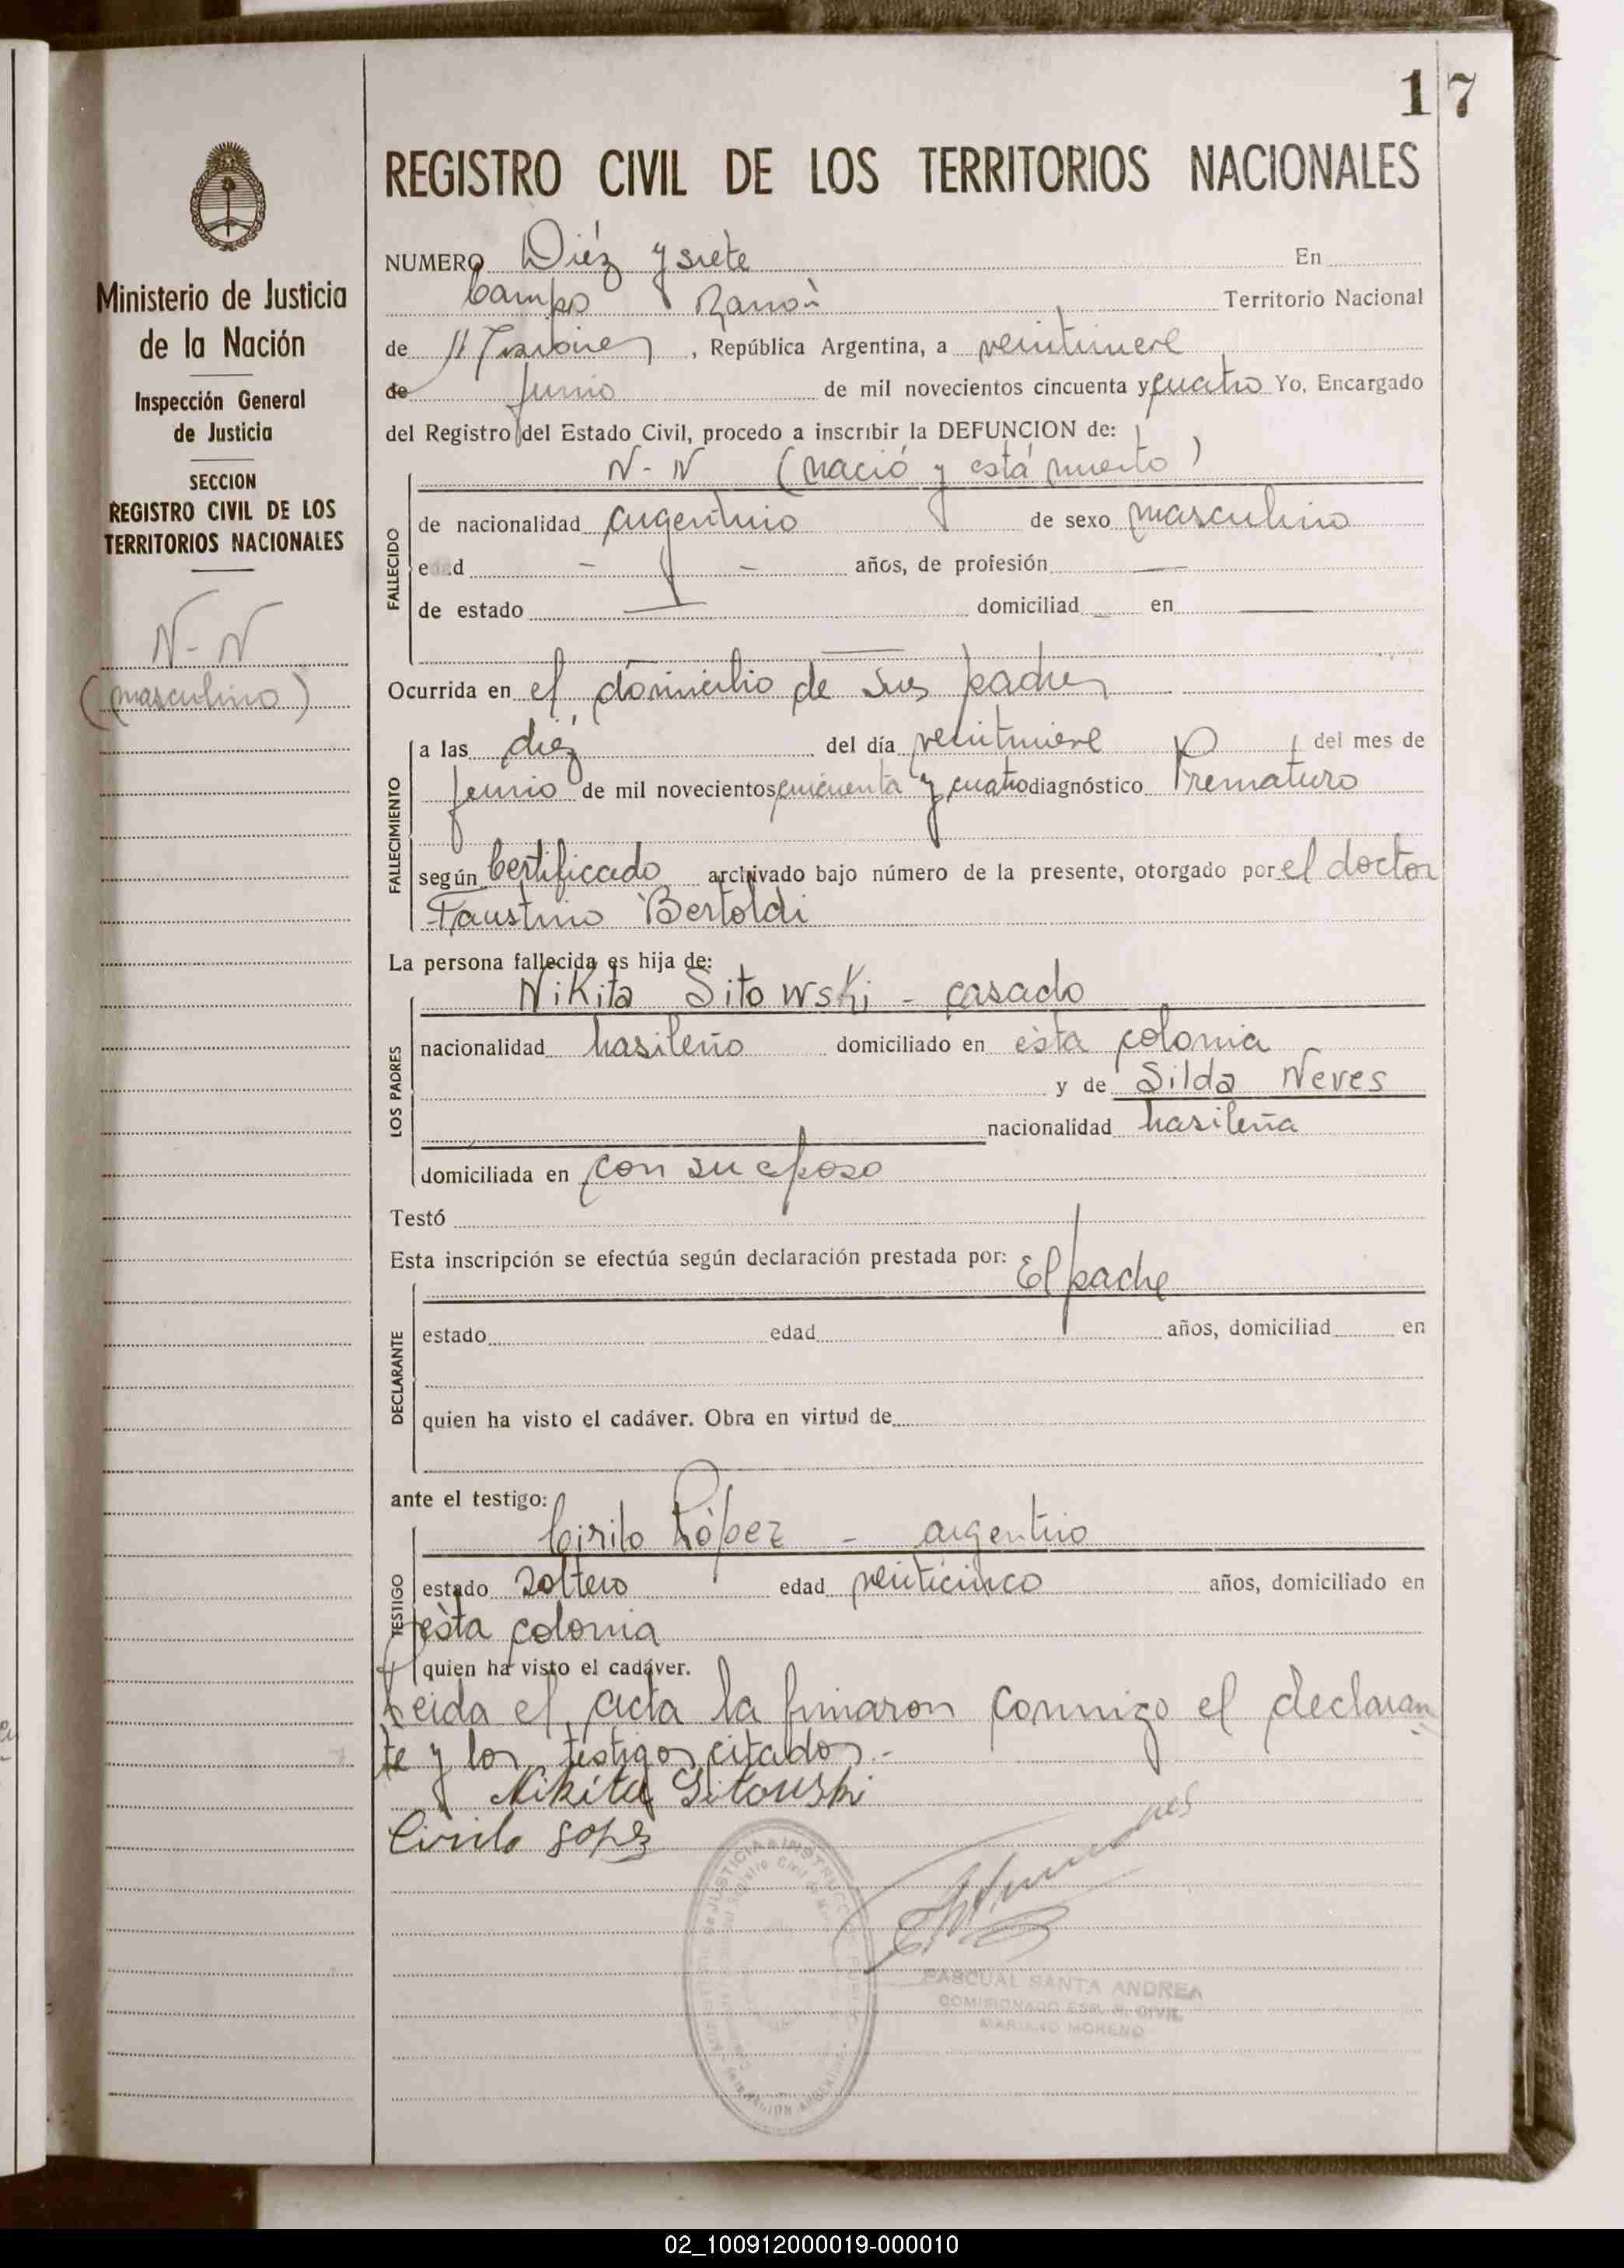 17
REGISTRO CIVIL DE LOS TERRITORIOS NACIONALES
Ministerio de Justicia
de la Nación
Inspección General
de Justicia
SECCION
REGISTRO CIVIL DE LOS
TERRITORIOS NACIONALES
N-N
(masculino)
NUMERO Diéz y siete En
Campo Ramón Territorio Nacional
de Misiones, República Argentina, a veintinueve
de Junio de mil novecientos cincuenta y cuatro Yo, Encargado
del Registro del Estado Civil, procedo a inscribir la DEFUNCION de:
N-N (nació y está muerto)
FALLECIDO
de nacionalidad argentino de sexo masculino
edad - - años, de profesión —
de estado — domiciliad en —
Ocurrida en el domicilio de sus padres
FALLECIMIENTO
a las diéz del día veintinueve del mes de
junio de mil novecientos cincuenta y cuatro diagnóstico Prematuro
según Certificado archivado bajo número de la presente, otorgado por el doctor
Faustino Bertoldi
La persona fallecida es hija de:
LOS PADRES
Nikita Sitowski - casado
nacionalidad brasileño domiciliado en ésta colonia
y de Silda Neves
nacionalidad brasileña
domiciliada en con su esposo
Testó
Esta inscripción se efectúa según declaración prestada por: El padre
DECLARANTE
estado edad años, domiciliad en
quien ha visto el cadáver. Obra en virtud de
ante el testigo:
TESTIGO
Cirilo López - argentino
estado soltero edad veinticinco años, domiciliado en
ésta colonia
quien ha visto el cadáver.
Leida el acta la firmaron conmigo el declaran
te y los testigos citados.-
Nikita Sitouski
Cirilo Lopez
PASCUAL SANTA ANDREA
COMISIONADO ESP. R. CIVIL
MARIANO MORENO
02_100912000019-000010